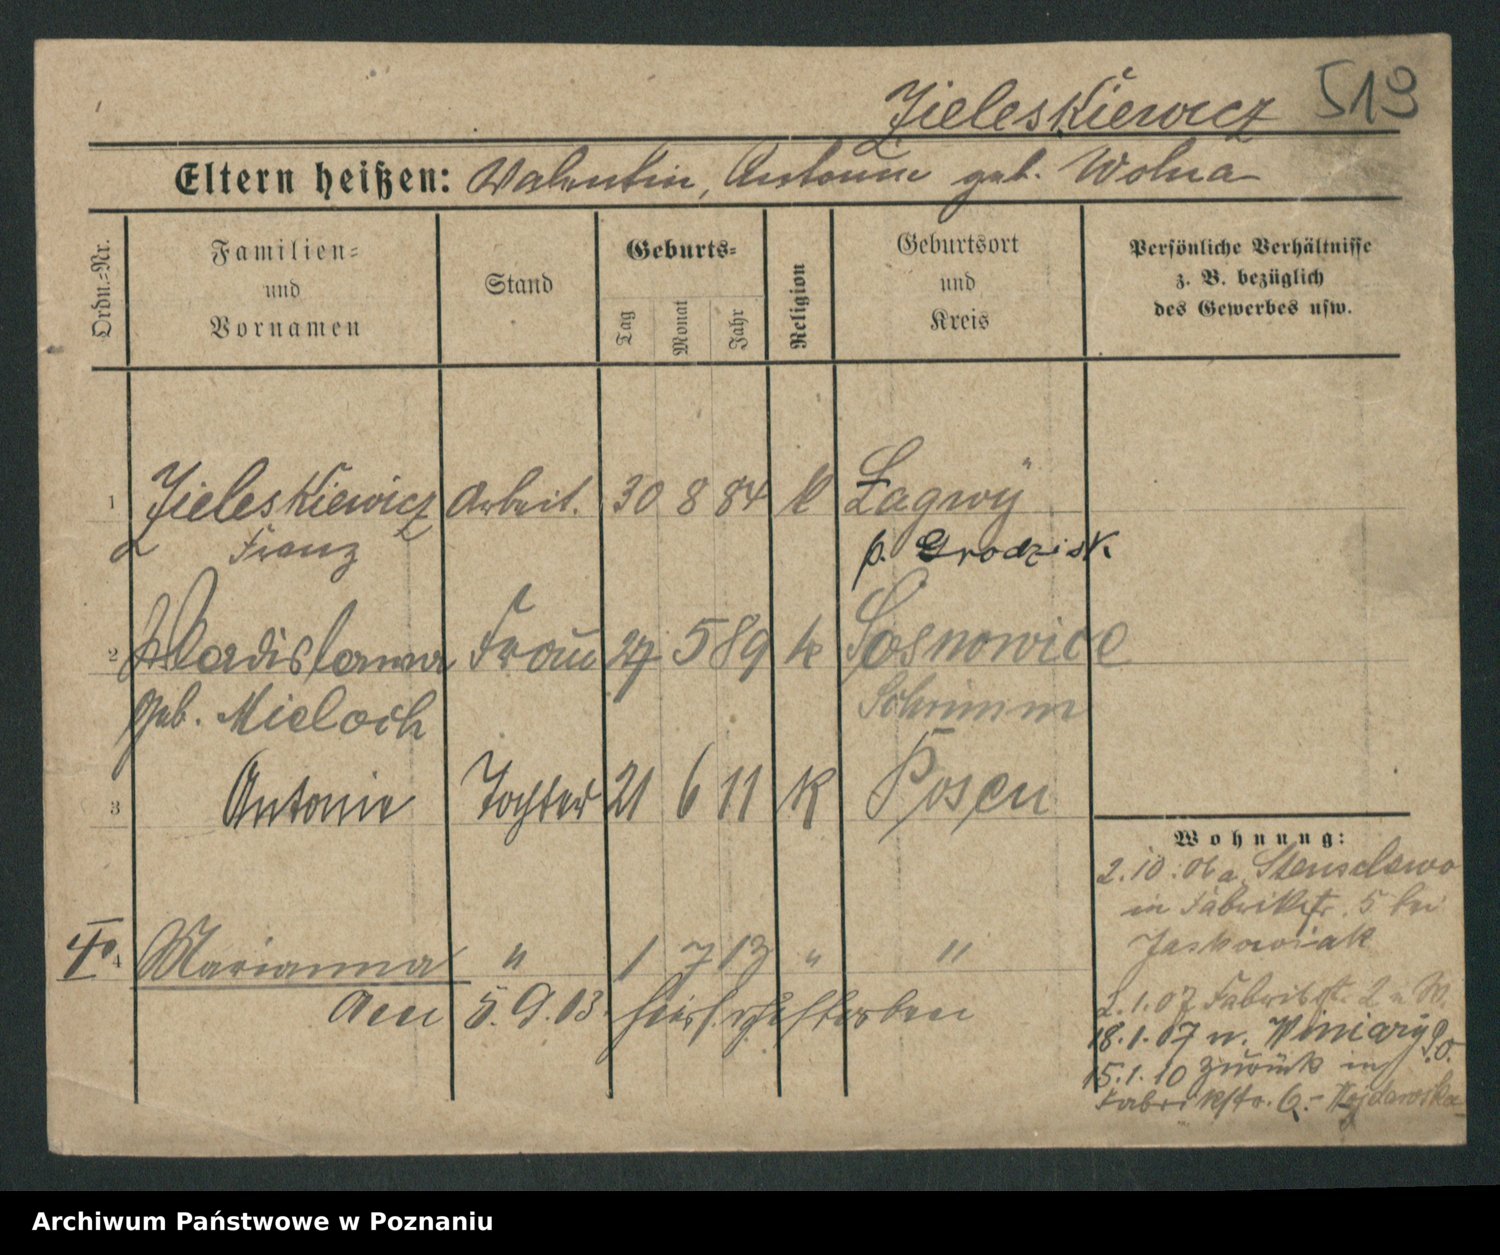 519
Zieleskiewicz
Eltern heißen: Valentin, Antonie geb. Wolna
Ordn.-Nr.
Familien-
und
Vornamen
Stand
Geburts-
Tag
Monat
Jahr
Religion
Geburtsort
und
Kreis
Persönliche Verhältnisse
z. B. bezüglich
des Gewerbes usw.
1 Zieleskiewicz Arbeit. 30 8 84 k Łagwy
Franz p. Grodzisk
2 Wladislawa Frau 27 5 89 k Sosnowice
geb. Mieloch Schrimm
3 Antonie Tochter 21 6 11 k Posen
4 Marianna " 1 7 13 " "
Am 5. 9. 13 hier verstorben
Wohnung:
2.10.06 a.
in Fabrikstr. 5 bei
Jaskowiak
2.1.07 Fabrikstr. 2 a W.
18.1.07 n. Winiary
15.1.10 zurück in
Fabrikstr. 6.-
Archiwum Państwowe w Poznaniu